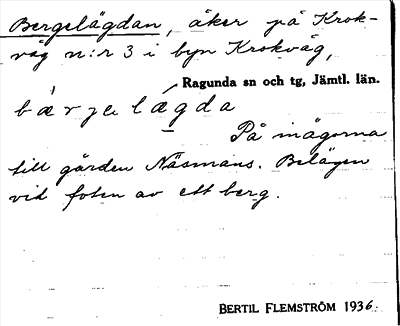 Bergslägdan, åker på Krok-
våg n:r 3 i byn Krokvåg,
Ragunda sn och tg, Jämtl. län.
bærjelægda
På inägorna
till gården Näsmans. Belägen
vid foten av ett berg.
BERTIL FLEMSTRÖM 1936.